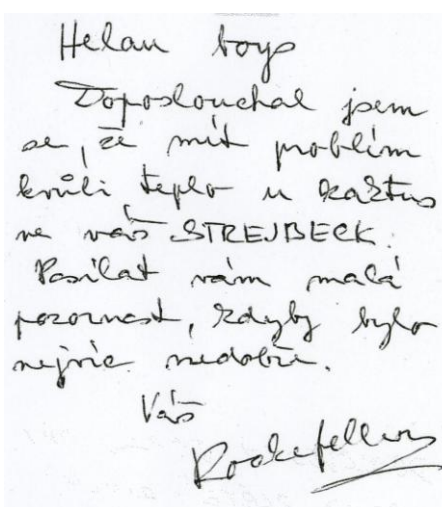 Helau boys
Doposlouchal jsem
se, že mít problém
kvůli teplo u kaktus
na váš STREJBECK.
Posílat vám malá
pozornost, kdyby bylo
nejvíc nedobře.
Váš
Rockefeller